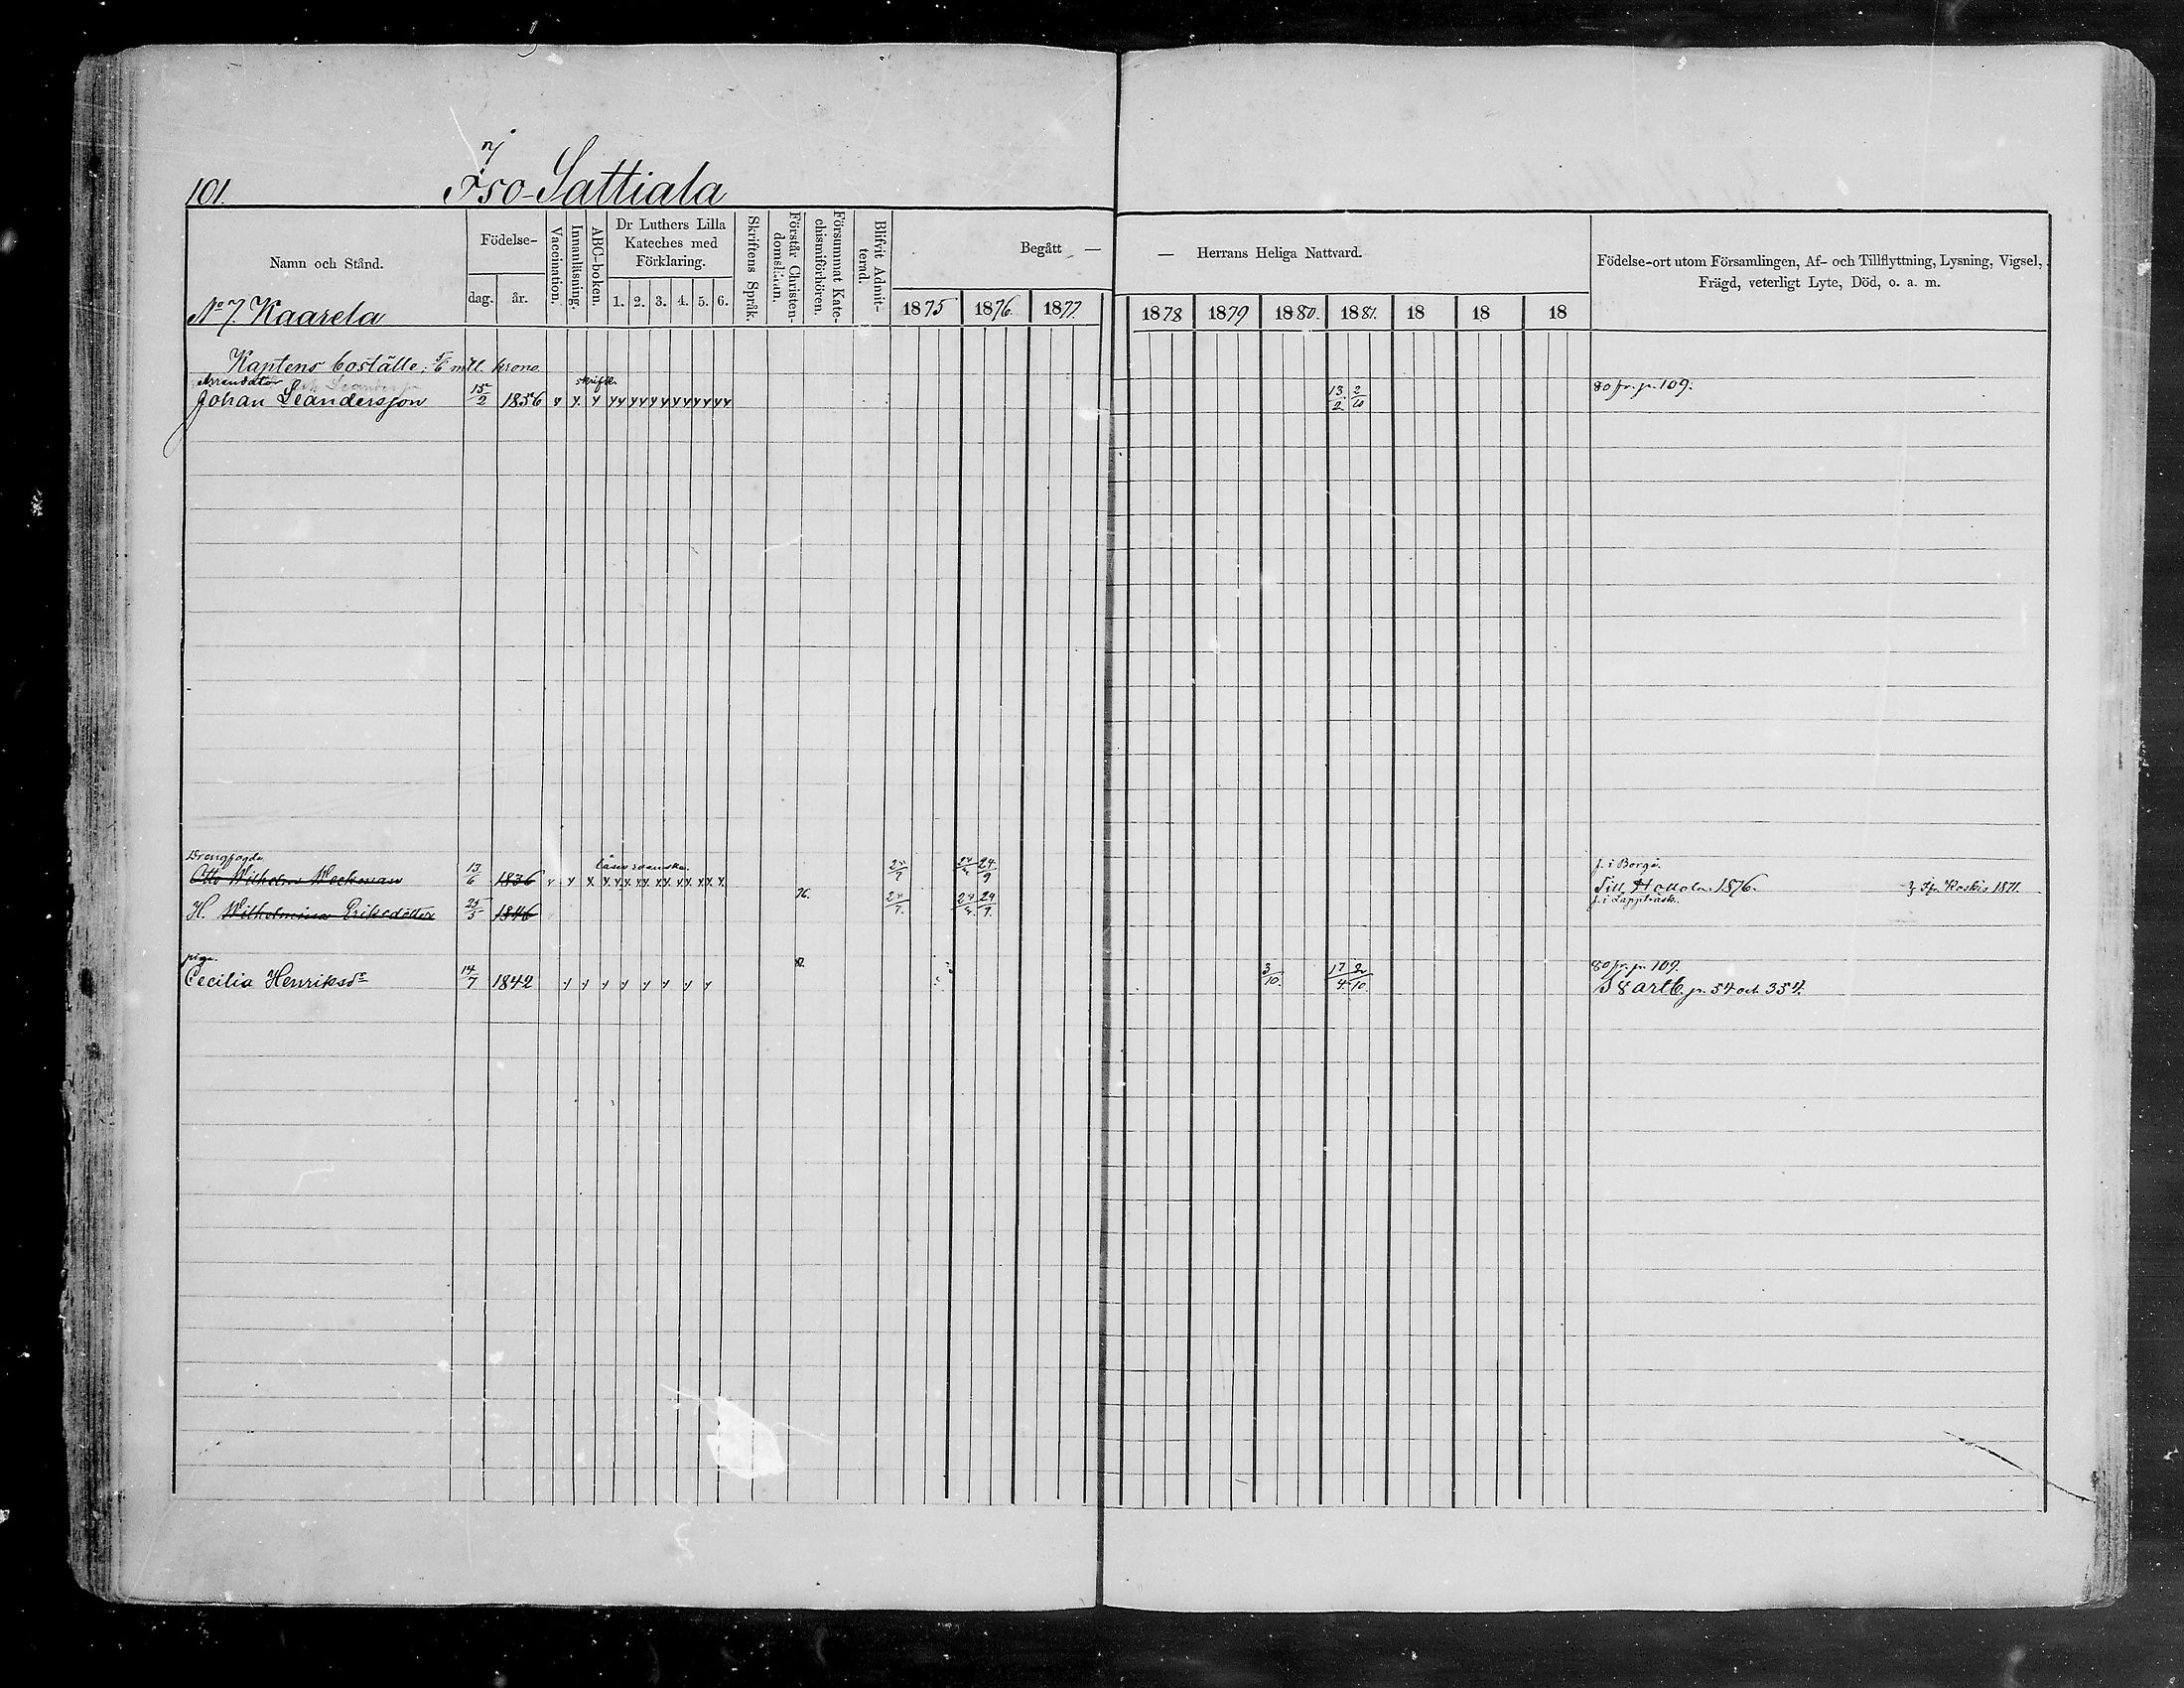 7
101.
Iso-Sattiala
Namn och Stånd.
Födelse-
dag.
år.
Vaccination.
Innanläsning.
ABC-boken.
Dr Luthers Lilla
Kateches med
Förklaring.
1. 2. 3. 4. 5. 6.
Skriftens Språk.
Förstår Christen-
domslään.
Försummat Kate-
chismiförhören.
Blifvit Admit-
terad.
Begått —
— Herrans Heliga Nattvard.
1875 1876. 1877.
1878 1879 1880. 1881. 18 18 18
Födelse-ort utom Församlingen, Af- och Tillflyttning, Lysning, Vigsel,
Frägd, veterligt Lyte, Död, o. a. m.
No 7. Kaarela
Kaptens boställe; 5/6 mtl. krono
Arrendator
skriftk.
Johan Leandersson 15/2 1856 13/2 2/10 80 fr. p. 109.
Drengfogde
läser svenska
f. i Borgå.
Otto Wilhelm Weckman 13/6 1836 24/7 24/9 Till Hollola 1876.
H. Wilhelmina Eriksdotter 25/5 1846 76. 24/7. 24/9. f. i Lappträsk.
piga
80 fr. p. 109.
Cecilia Henriksdr 14/7 1842 3/10. 17/4 2/10. p. 54 och 354.